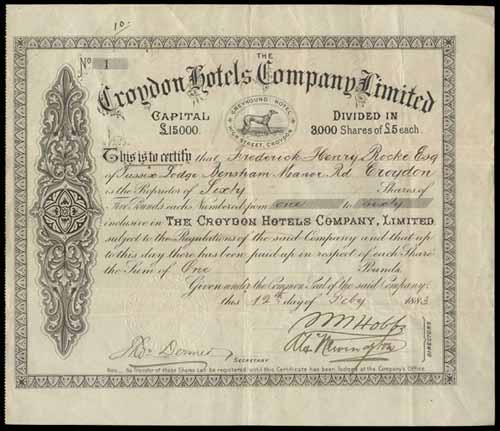 10.
THE
No 1
Croydon Hotels Company, Limited
CAPITAL
£15000.
GREYHOUND HOTEL
HIGH STREET, CROYDON
DIVIDED IN
3000 Shares of £5 each.
This is to certify that Frederick Henry Rocke Esq
of Sussex Lodge Bensham Manor Rd Croydon
is the Proprietor of Sixty Shares of
Five Pounds each Numbered from one to sixty
inclusive in THE CROYDON HOTELS COMPANY, LIMITED
subject to the Regulations of the said Company and that up
to this day there has been paid up in respect of each Share
the Sum of One Pounds.
Given under the Common Seal of the said Company
this 12th day of Feby 1883
DIRECTORS
SECRETARY
NOTE. No Transfer of these Shares can be registered until this Certificate has been lodged at the Company's Office.